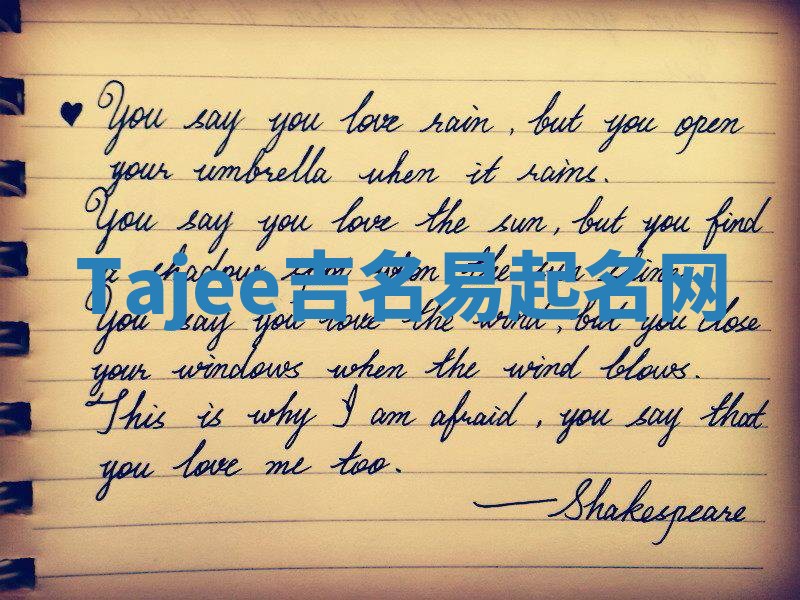 ♥ You say you love rain, but you open
your umbrella when it rains.
You say you love the sun, but you find
a shadow when the sun
Tajee吉名易起名网
You say you love the wind, but you close
your windows when the wind blows.
This is why I am afraid, you say that
you love me too.
—Shakespeare